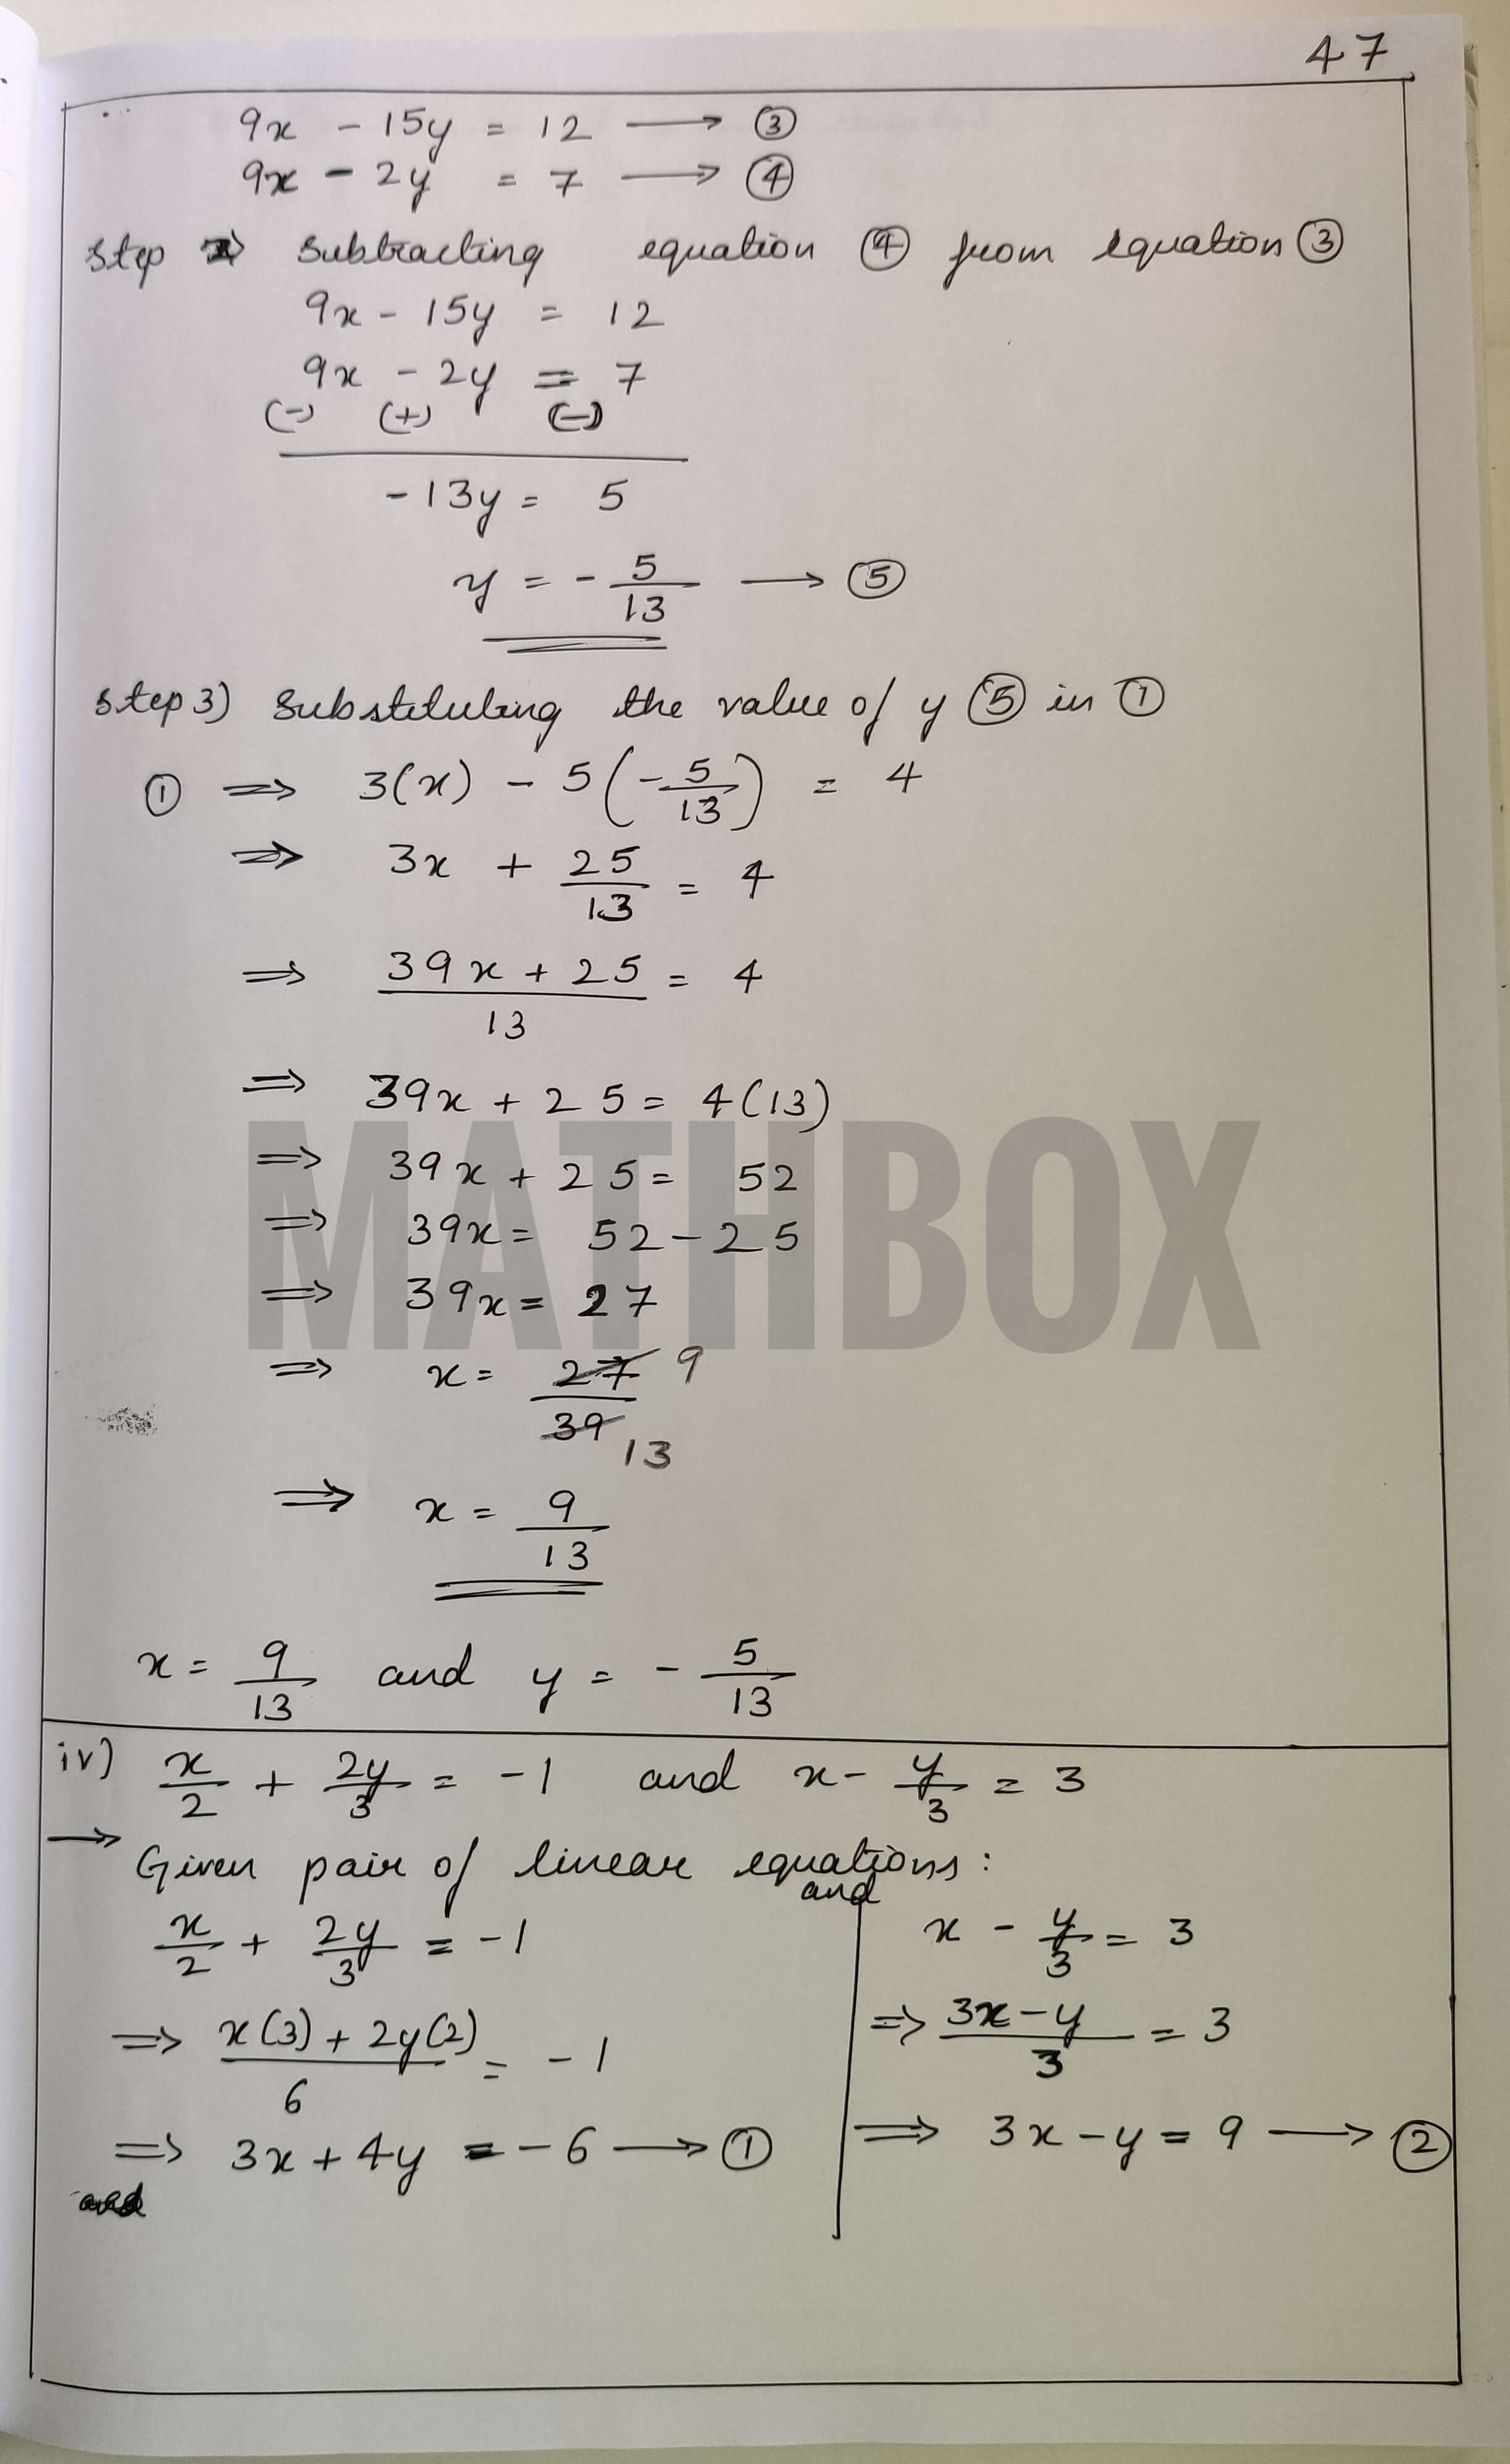 47
9x - 15y = 12 → ③
9x - 2y = 7 → ④
step 2) Subtracting equation ④ from equation ③
9x - 15y = 12
9x - 2y = 7
(-) (+) (-)
-13y = 5
y = - 5/13 → ⑤
step 3) Substituting the value of y ⑤ in ①
① ⇒ 3(x) - 5(-5/13) = 4
⇒ 3x + 25/13 = 4
⇒ (39x + 25)/13 = 4
⇒ 39x + 25 = 4(13)
⇒ 39x + 25 = 52
⇒ 39x = 52 - 25
⇒ 39x = 27
⇒ x = 27/39 9 13
⇒ x = 9/13
MATHBOX
x = 9/13 and y = - 5/13
iv) x/2 + 2y/3 = -1 and x - y/3 = 3
→ Given pair of linear equations:
x/2 + 2y/3 = -1 and x - y/3 = 3
⇒ (x(3) + 2y(2))/6 = -1 ⇒ (3x - y)/3 = 3
⇒ 3x + 4y = -6 → ① ⇒ 3x - y = 9 → ②